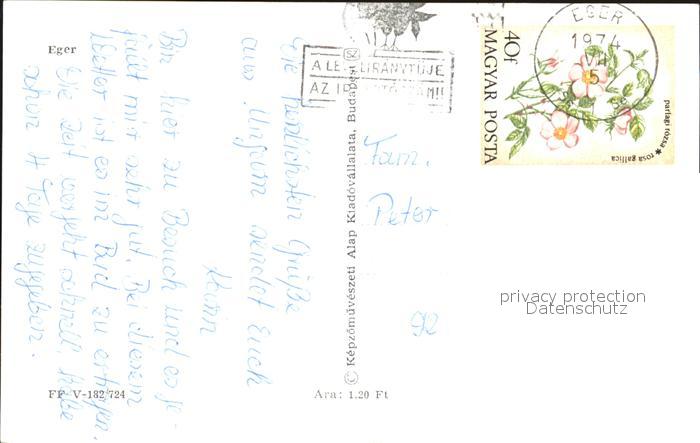 Eger
Die herzlichsten Grüße
aus Ungarn sendet Euch
Karin
Bin hier zu Besuch und es ge-
fällt mir sehr gut. Bei diesem
Wetter ist es im Bad zu ertragen.
Die Zeit vergeht schnell, habe
schon 4 Tage zugegeben.
FF V-182/724
Ára: 1.20 Ft
© Képzőművészeti Alap Kiadóvállalata, Budapest
A LE IRÁNYÍTÓJE
AZ IR SZÁM!!
EGER
1974
VII
5
40f
MAGYAR POSTA
parlagi rózsa * rosa gallica
Fam.
Peter
92
privacy protection
Datenschutz